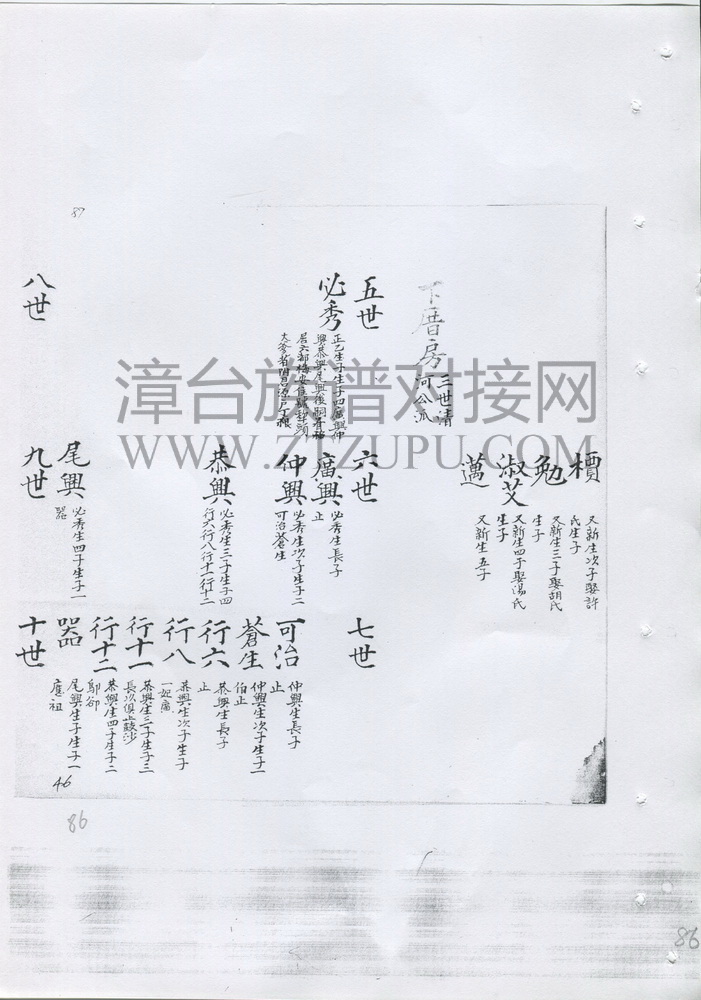 87
價
又新生次子娶許
氏生子
勉
又新生三子娶胡氏
生子
淑艾
又新生四子娶湯氏
生子
邁
又新生五子
下厝房
三世清
河公派
五世
六世
七世
必秀
正乙生子生子四廣興仲
興恭興尾興後嗣
廣興
必秀生長子
止
仲興
必秀生次子生子二
可治蒼生
恭興
必秀生三子生子四
行六行八行十一行十二
尾興
必秀生四子生子一
器
可治
仲興生長子
止
蒼生
仲興生次子生子一
伯止
行六
恭興生長子
止
行八
恭興生次子生子
一
行十一
恭興生三子生子三
長次俱止
行十二
恭興生四子生子二
器
尾興生子生子一
應祖
八世
九世
十世
46
86
86
漳台族谱对接网
WWW.ZTZUPU.COM